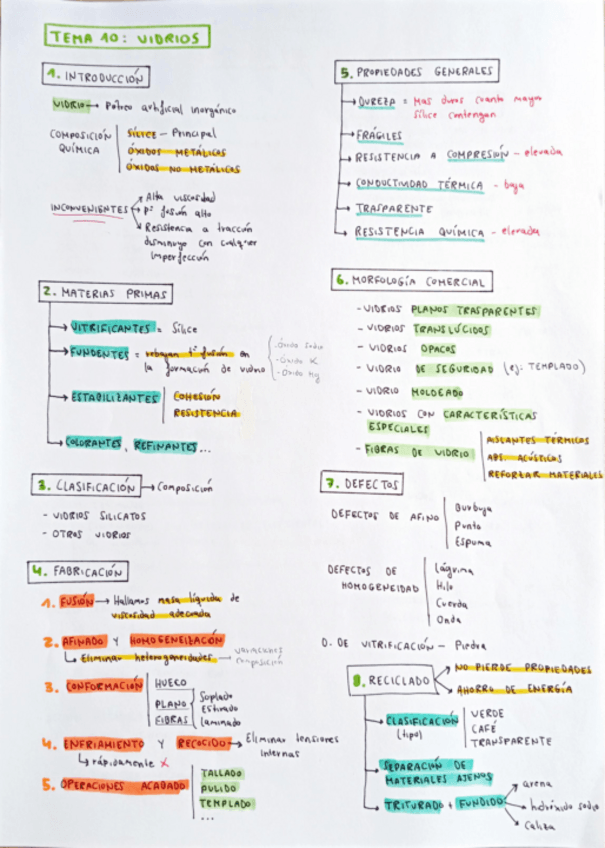 TEMA 10: VIDRIOS
1. INTRODUCCIÓN
VIDRIO → Pétreo artificial inorgánico
COMPOSICIÓN QUÍMICA
SÍLICE - Principal
ÓXIDOS METÁLICOS
ÓXIDOS NO METÁLICOS
INCONVENIENTES
Alta viscosidad
pº fusión alto
Resistencia a tracción
disminuye con cualquier
imperfección
2. MATERIAS PRIMAS
VITRIFICANTES = Sílice
FUNDENTES = rebajan tº fusión en
la formación de vidrio
- Óxido sodio
- Óxido K
- Óxido Mg
ESTABILIZANTES
COHESIÓN
RESISTENCIA
COLORANTES, REFINANTES...
3. CLASIFICACIÓN → Composición
- VIDRIOS SILICATOS
- OTROS VIDRIOS
4. FABRICACIÓN
1. FUSIÓN → Hallamos masa líquida de
viscosidad adecuada
2. AFINADO Y HOMOGENEIZACIÓN
↳ Eliminar heterogeneidades — variaciones
composición
3. CONFORMACIÓN
HUECO
PLANO
FIBRAS
Soplado
Estirado
Laminado
4. ENFRIAMIENTO Y RECOCIDO → Eliminar tensiones
internas
↳ rápidamente X
5. OPERACIONES ACABADO
TALLADO
PULIDO
TEMPLADO
...
5. PROPIEDADES GENERALES
DUREZA = Mas duros cuanto mayor
sílice contengan
FRÁGILES
RESISTENCIA A COMPRESIÓN - elevada
CONDUCTIVIDAD TÉRMICA - baja
TRASPARENTE
RESISTENCIA QUÍMICA - elevada
6. MORFOLOGÍA COMERCIAL
- VIDRIOS PLANOS TRASPARENTES
- VIDRIOS TRANSLÚCIDOS
- VIDRIOS OPACOS
- VIDRIO DE SEGURIDAD (ej: TEMPLADO)
- VIDRIO MOLDEADO
- VIDRIOS CON CARACTERÍSTICAS
ESPECIALES
- FIBRAS DE VIDRIO
AISLANTES TÉRMICOS
ABS. ACÚSTICOS
REFORZAR MATERIALES
7. DEFECTOS
DEFECTOS DE AFINO
Burbuja
Punto
Espuma
DEFECTOS DE
HOMOGENEIDAD
Lágrima
Hilo
Cuerda
Onda
D. DE VITRIFICACIÓN - Piedra
8. RECICLADO
NO PIERDE PROPIEDADES
AHORRO DE ENERGÍA
CLASIFICACIÓN
(tipo)
VERDE
CAFÉ
TRANSPARENTE
SEPARACIÓN DE
MATERIALES AJENOS
TRITURADO + FUNDIDO
arena
hidróxido sodio
caliza